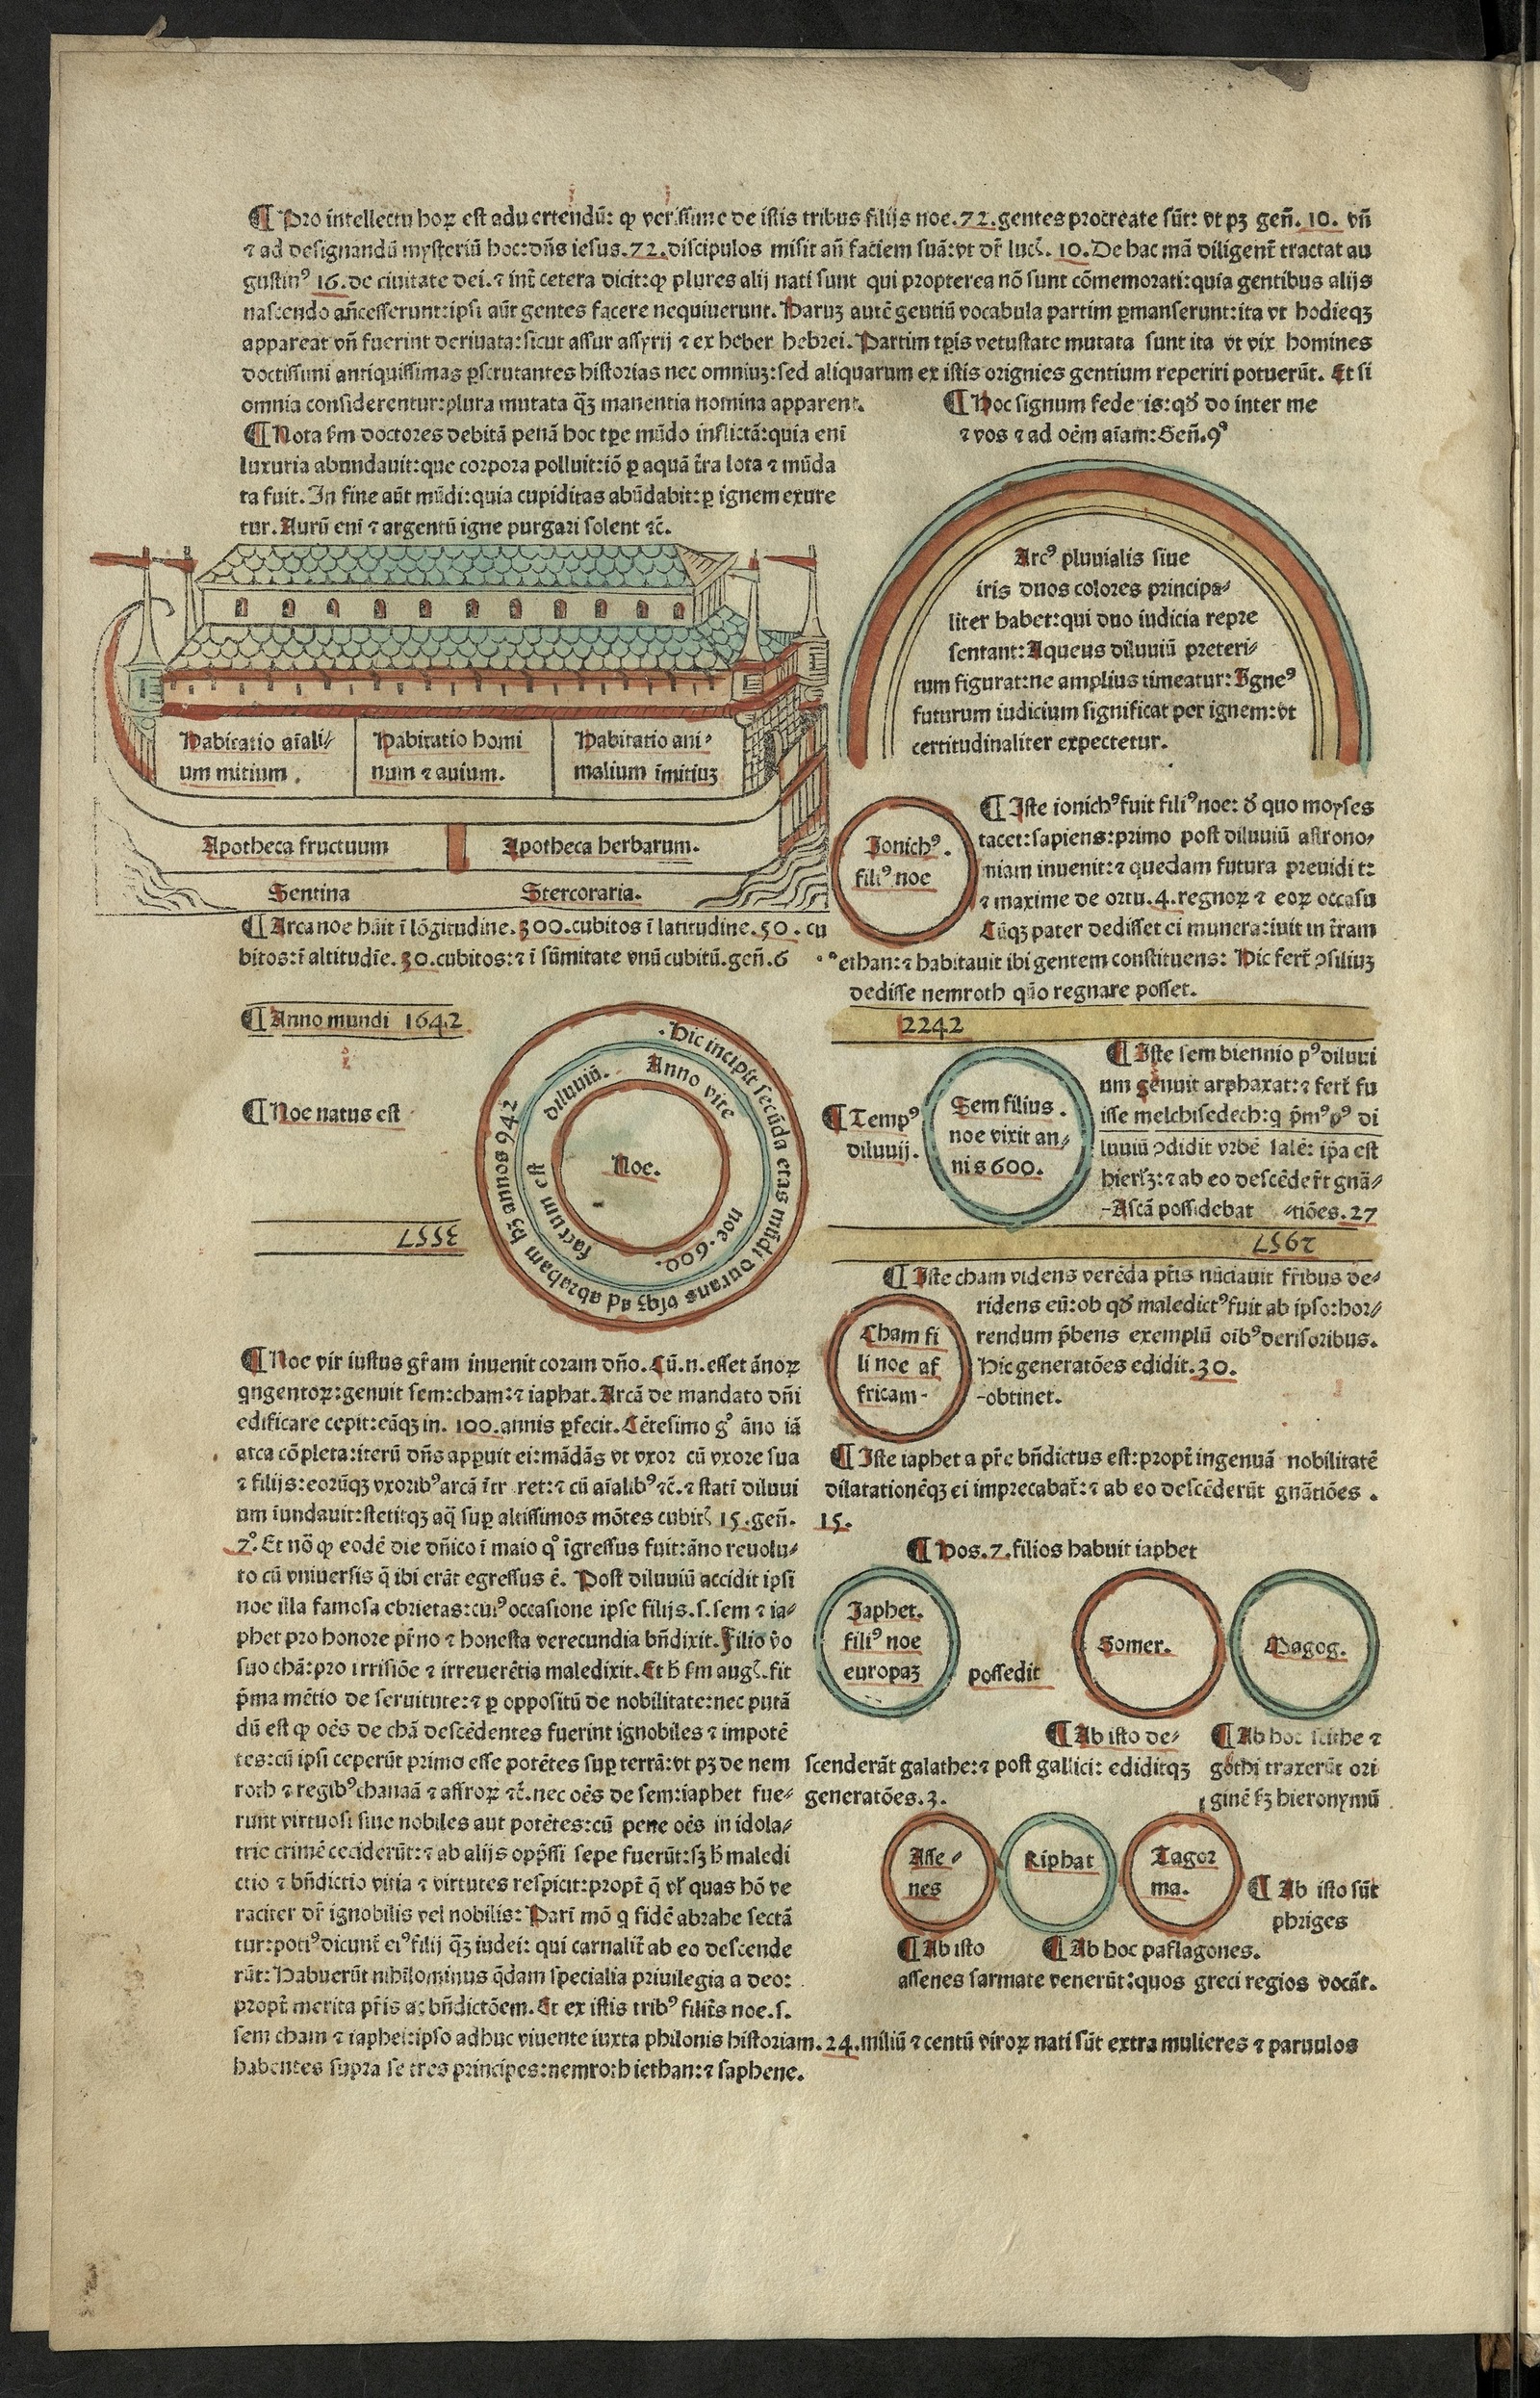 ¶ Pro intellectu hoꝝ est aduertendū: ꝙ verissime de istis tribus filijs noe.72.gentes procreate sūt: vt pꝫ geñ.10. vñ
⁊ ad designandū mysteriū hoc:dñs iesus.72.discipulos misit añ faciem suā:vt dr̄ luc̄. 10. De hac mā diligent̄ tractat au
gustinꝰ 16.de ciuitate dei.⁊ int̄ cetera dicit:ꝙ plures alij nati sunt qui propterea nō sunt cōmemorati:quia gentibus alijs
nascendo añcesserunt:ipsi aūt gentes facere nequiuerunt. Haruꝫ autē gentiū vocabula partim ꝑmanserunt:ita vt hodieqꝫ
appareat vñ fuerint deriuata:sicut assur assyrij ⁊ ex heber hebrei. Partim tꝑis vetustate mutata sunt ita vt vix homines
doctissimi antiquissimas ꝑscrutantes historias nec omniuꝫ:sed aliquarum ex istis orignies gentium reperiri potuerūt. Et si
omnia considerentur:plura mutata q̄ꝫ manentia nomina apparent.
¶ Nota ẜm doctores debitā penā hoc tꝑe mūdo inflictā:quia eni
luxuria abundauit:que corpora polluit:iō ꝑ aquā t̄ra lota ⁊ mūda
ta fuit. In fine aūt mūdi:quia cupiditas abūdabit:ꝑ ignem exure
tur. Aurū eni ⁊ argentū igne purgari solent ⁊c̄.
¶ Hoc signum federis:qđ do inter me
⁊ vos ⁊ ad oēm aīam:Geñ.9ꝰ
Arcꝰ pluuialis siue
iris duos colores principa⸗
liter habet:qui duo iudicia repre
sentant:Aqueus diluuiū preteri⸗
tum figurat:ne amplius timeatur:Igneꝰ
futurum iudicium significat per ignem:vt
certitudinaliter expectetur.
Habitatio aīali⸗
um mitium.
Habitatio homi
num ⁊ auium.
Habitatio ani⸗
malium īmitiuꝫ
Apotheca fructuum
Apotheca herbarum.
Sentina
Stercoraria.
¶ Arca noe hūit ī lōgitudine.300.cubitos ī latitudine.50. cu
bitos:ī altitudīe.30.cubitos:⁊ ī sūmitate vnū cubitū.geñ.6
Ionichꝰ.
filiꝰ noe
¶ Iste ionichꝰ fuit filiꝰ noe: đ quo moyses
tacet:sapiens:primo post diluuiū astrono⸗
miam inuenit:⁊ quedam futura preuidit:
⁊ maxime de ortu.4.regnoꝝ ⁊ eoꝝ occasu
Cūqꝫ pater dedisset ei munera:iuit in t̄ram
ethan:⁊ habitauit ibi gentem constituens: Hic fert̄ ↄsiliuꝫ
dedisse nemroth quō regnare posset.
¶ Anno mundi 1642
¶ Noe natus est
3557
·Hic incipit secūda etas mūdi durans vsqꝫ ad abraham hꝫ annos 942
Anno vite noe.600. factum est diluuiū.
Noe.
2242
¶ Tempꝰ
diluuij.
Sem filius.
noe vixit an⸗
nis 600.
¶ Iste sem biennio pꝰ diluui
um genuit arphaxat:⁊ fert̄ fu
isse melchisedech:q p̄mꝰ pꝰ di
luuiū ↄdidit vrbē salē: ip̄a est
hierłꝫ:⁊ ab eo descēder̄t gnā⸗
-Ascā possidebat ⸗tiōes.27
2957
¶ Iste cham videns verēda pr̄is nūciauit fr̄ibus de⸗
ridens eū:ob qđ maledictꝰ fuit ab ipso:hor⸗
rendum p̄bens exemplū oībꝰ derisoribus.
Hic generatōes edidit.30.
-obtinet.
Cham fi
li noe af
fricam-
¶ Noe vir iustus gr̄am inuenit coram dño.Cū.n.esset ānoꝝ
qngentoꝝ:genuit sem:cham:⁊ iaphat.Arcā de mandato dñi
edificare cepit:eāqꝫ in. 100.annis ꝑfecit.Cētesimo gͦ āno iā
arca cōpleta:iterū dñs apꝑuit ei:mādās vt vxor cū vxore sua
⁊ filijs:eorūqꝫ vxoribꝰ arcā īt̄r ret:⁊ cū aīalibꝰ ⁊c̄.⁊ stati diluui
um iundauit:stetitqꝫ aq̄ suꝑ altissimos mōtes cubit̄ 15.geñ.
7ͦ. Et nō ꝙ eodē die dñico ī maio qͦ īgressus fuit:āno reuolu⸗
to cū vniuersis q̄ ibi erāt egressus ē. Post diluuiū accidit ipsi
noe illa famosa ebrietas:cuiꝰ occasione ipse filijs.s.sem ⁊ ia⸗
phet pro honore pr̄no ⁊ honesta verecundia bñdixit.Filio v̄o
suo chā:pro irrisiōe ⁊ irreuerētia maledixit.Et h̄ ẜm auḡ.fit
p̄ma mētio de seruitute:⁊ ꝑ oppositū de nobilitate:nec putā
dū est ꝙ oēs de chā descēdentes fuerint ignobiles ⁊ impotē
tes:cū ipsi ceperūt primo esse potētes suꝑ terrā:vt pꝫ de nem
roth ⁊ regibꝰ chanaā ⁊ assroꝝ ⁊c̄.nec oēs de sem:iaphet fue⸗
runt virtuosi siue nobiles aut potētes:cū pene oēs in idola⸗
trie crimē ceciderūt:⁊ ab alijs opp̄ssi sepe fuerūt:sꝫ h̄ maledi
ctio ⁊ bñdictio vitia ⁊ virtutes respicit:propt̄ q̄ vł quas hō ve
raciter dr̄ ignobilis vel nobilis: Pari mō q fidē abrahe sectā
tur:potiꝰ dicunt̄ eiꝰ filij q̄ꝫ iudei: qui carnalit̄ ab eo descende
rūt: Habuerūt nihilominus q̄dam specialia priuilegia a deo:
propt̄ merita pr̄is ac bñdictōem.Et ex istis tribꝰ filit̄s noe.s.
sem cham ⁊ iaphet:ipso adhuc viuente iuxta philonis historiam.24.miliū ⁊ centū viroꝝ nati sūt extra mulieres ⁊ paruulos
habentes supra se tres principes:nemroth iethan:⁊ saphene.
¶ Iste iaphet a pr̄e bñdictus est:propt̄ ingenuā nobilitatē
dilatationēqꝫ ei imprecabat̄:⁊ ab eo descēderūt gnātiōes.
15.
¶ Hos.7.filios habuit iaphet
Iaphet.
filiꝰ noe
europaꝫ
possedit
Gomer.
Magog.
¶ Ab isto de⸗
scenderāt galathe:⁊ post gallici: ediditqꝫ
generatōes.3.
¶ Ab hoc scithe ⁊
gothi traxerūt ori
ginē ẜꝫ hieronymū
Asse⸗
nes
Riphat
Tagor
ma.
¶ Ab isto sūt
phriges
¶ Ab isto
¶ Ab hoc paflagones.
assenes sarmate venerūt:quos greci regios vocāt.